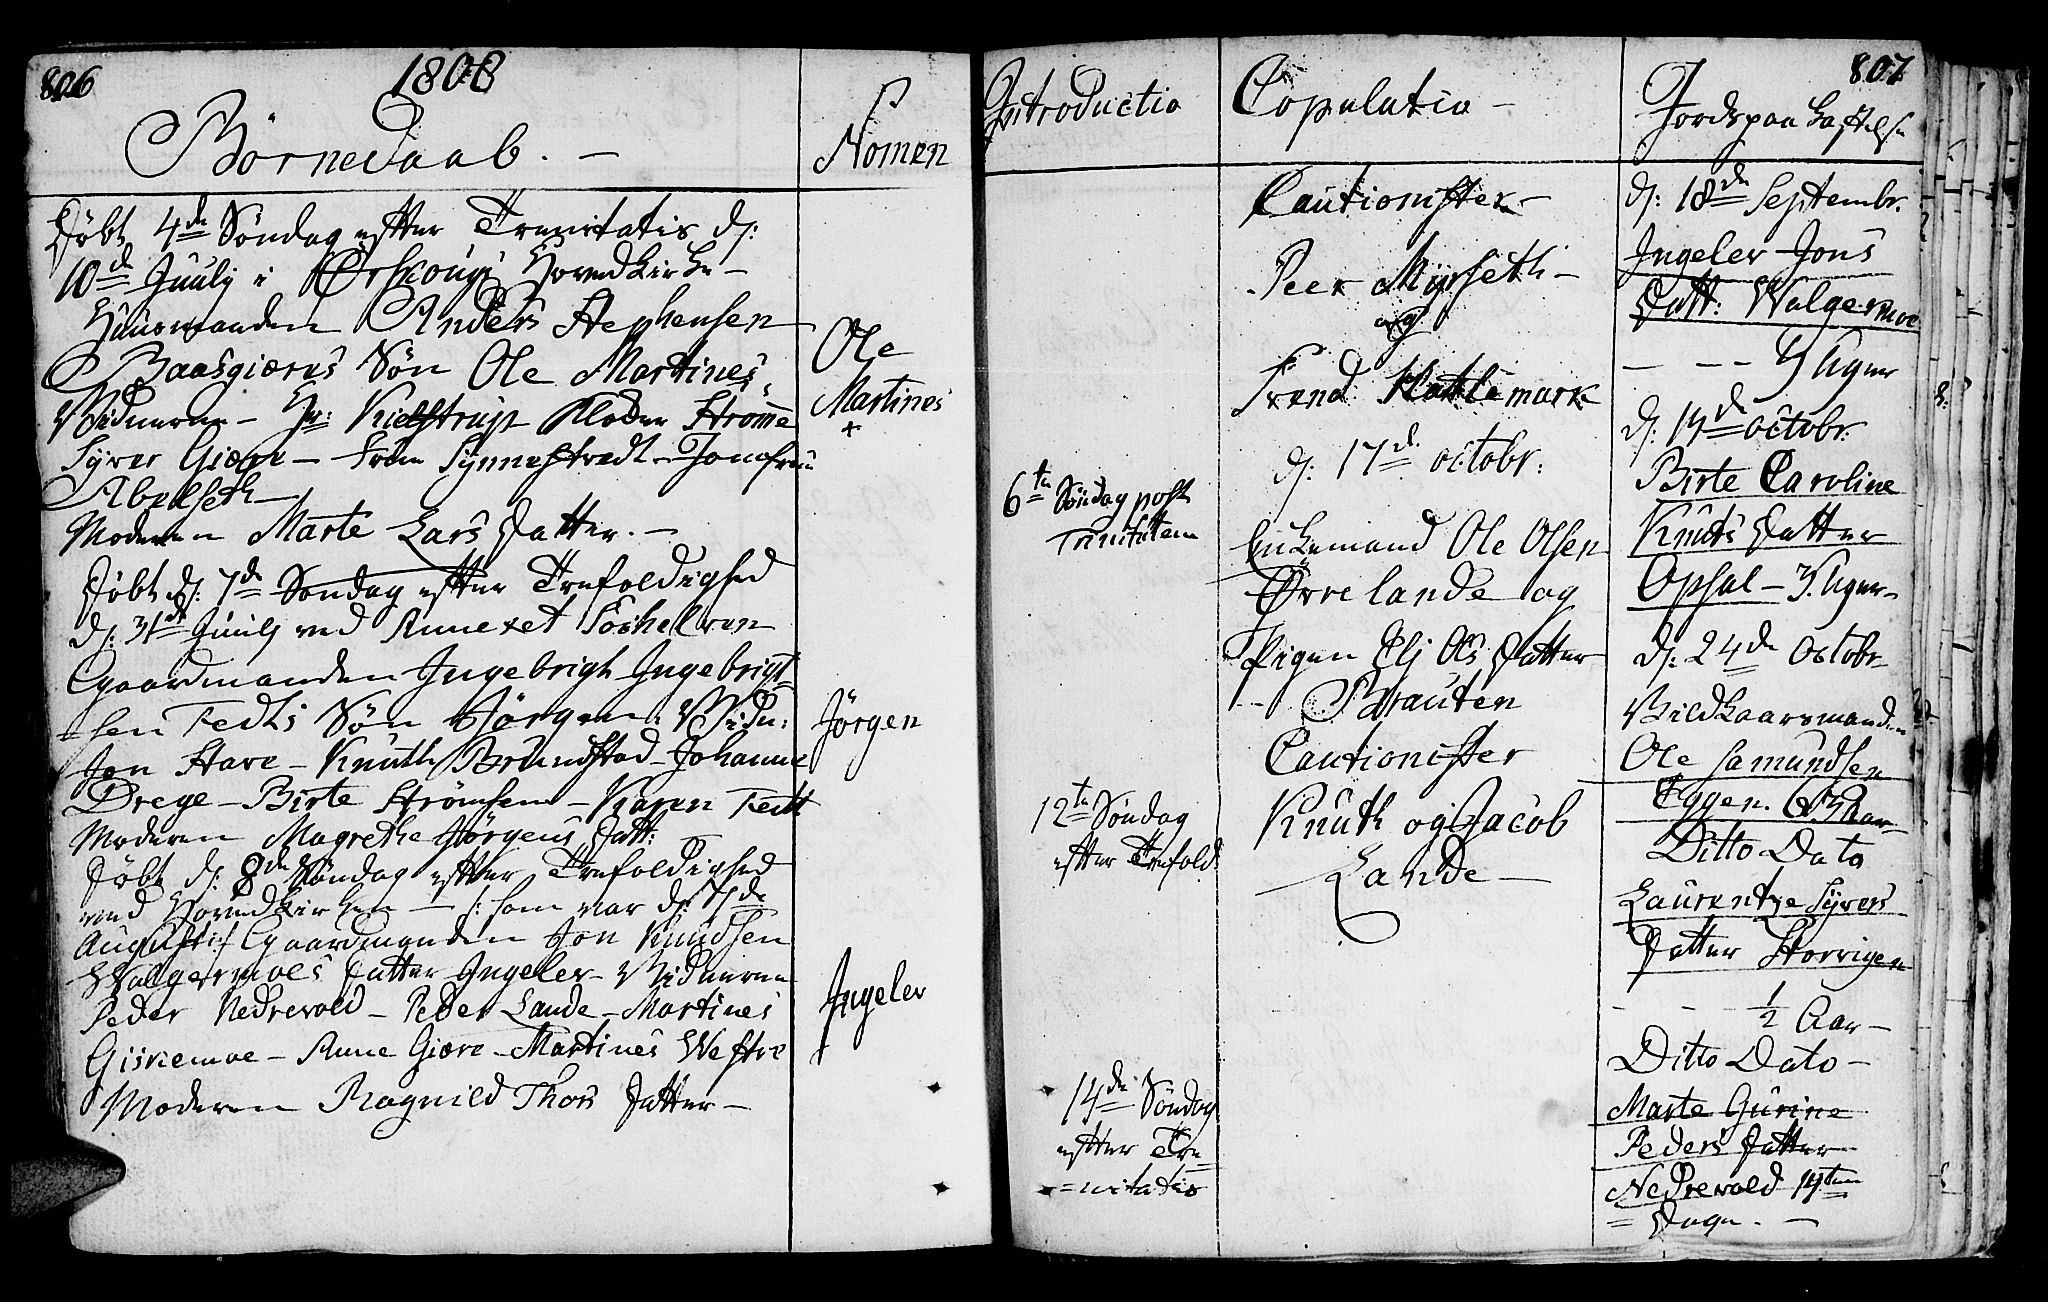 806
1808
Börnedaab. —
Nomen
Döbt 4de Söndag efter Trenitatis d:
10de Juulj i Ørskougs Hovedkirke —
Huusmanden Anders Stephensen
Baasgiærets Søn Ole Martines
Vidnerne — Hr: Kielstrup Kloker Strømme
Syver Giære — Frue Synnestvedt — Jomfrue
Abelseth
Moderen Marte Lars Datter. —
Ole
Martines
+
Döbt d: 7de Søndag efter Trefoldighed
d: 31de Juulj ved Annexet
Gaardmanden Ingebrigt Ingebrigt-
sen Fedts Søn Jörgen. Vidn:
Jon Stave — Knuth Brundstad — Johanne
Drege — Birte Strømsem — Karen Fedt
Moderen Magrethe Jörgens Datt:
Jörgen
Döbt d: 8de Söndag efter Trefoldighed
ved Hovedkirken — /: som var d: 7de
Augusti :/ Gaardmanden Jon Knudsen
Walgermoes Datter Ingeler — Vidnerne
Peder Nedrevold — Peder Lande — Martines
Giskemoe — Anne Giære — Martines Westre
Moderen Ragnild Thors Datter —
Ingeler
807
Introductio
6te Söndag post
Trinitatem
12te Søndag
efter Trefold:
14de Söndag
efter Tre
=nitatis
Copulatio —
Cautionister —
Peer Myrseth —
og
Trend Hatlemark
d: 17de octobr:
Enkemand Ole Olsen
Øvrelande og
Pigen Elj Ols Datter
Brauten
Cautionister
Knuth og Jacob
Lande —
Jordspaakastelse
d: 18de Septembr.
Ingeler Jons
Datt: Walgermoe
— — — 7 Uger
d: 17de octobr:
Birte Caroline
Knuts Datter
Opsal — 3. Uger —
d: 24de Octobr
Vilkaarsmanden
Ole Samundsen
Eggen.
Ditto Dato
Laurentze Syvers
Datter Storrigen
— — — ½ Aar —
Ditto Dato —
Marte Gurine
Peders Datter
Nedrevold 14ten
= Dage. —